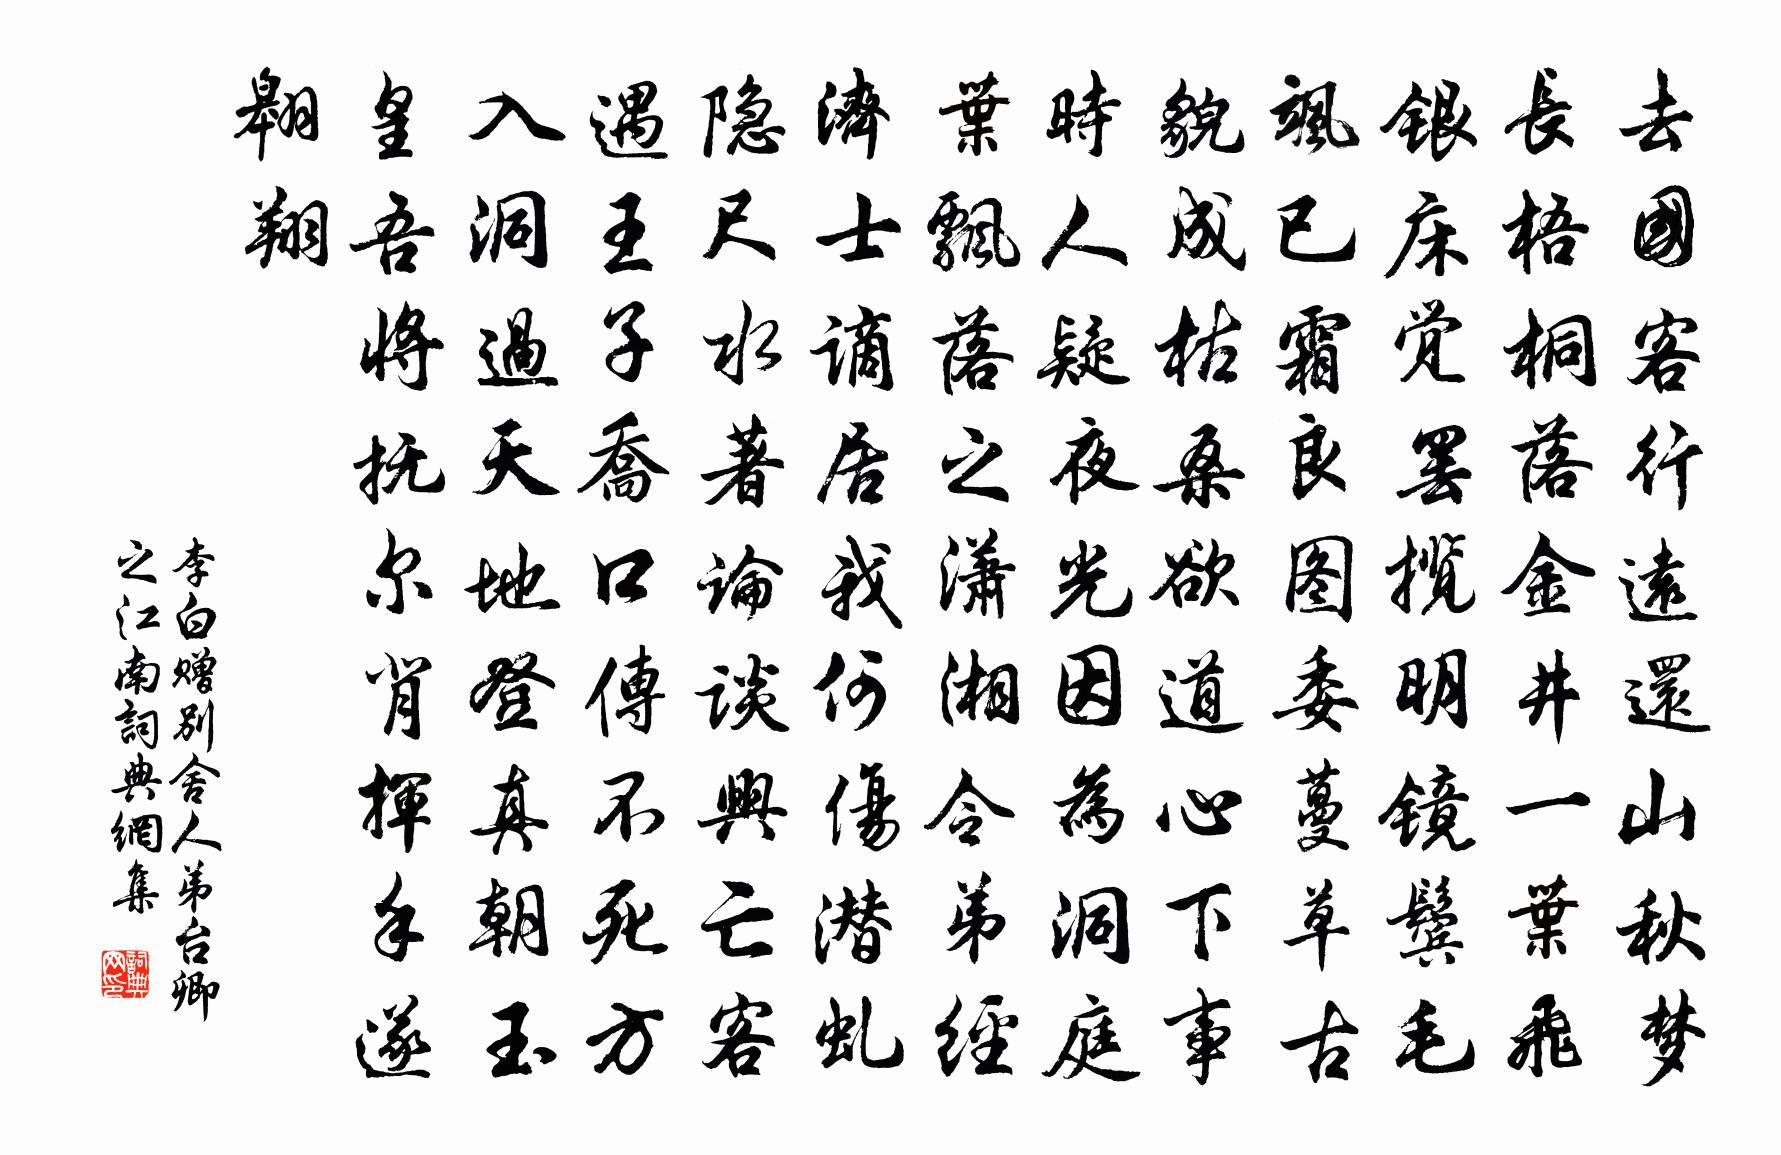 去國客行遠還山秋梦
長梧桐落金井一葉飛
銀床觉罢揽明镜鬓毛
飒已霜良图委蔓草古
貌成枯桑欲道心下事
時人疑夜光因為洞庭
葉飄落之潇湘令弟經
濟士谪居我何傷潜虬
隐尺水著論談興亡客
遇王子喬口傳不死方
入洞過天地登真朝玉
皇吾將抚尔背揮手遂
翱翔
李白赠别舍人弟台卿
之江南詞典網集
詞典
网印